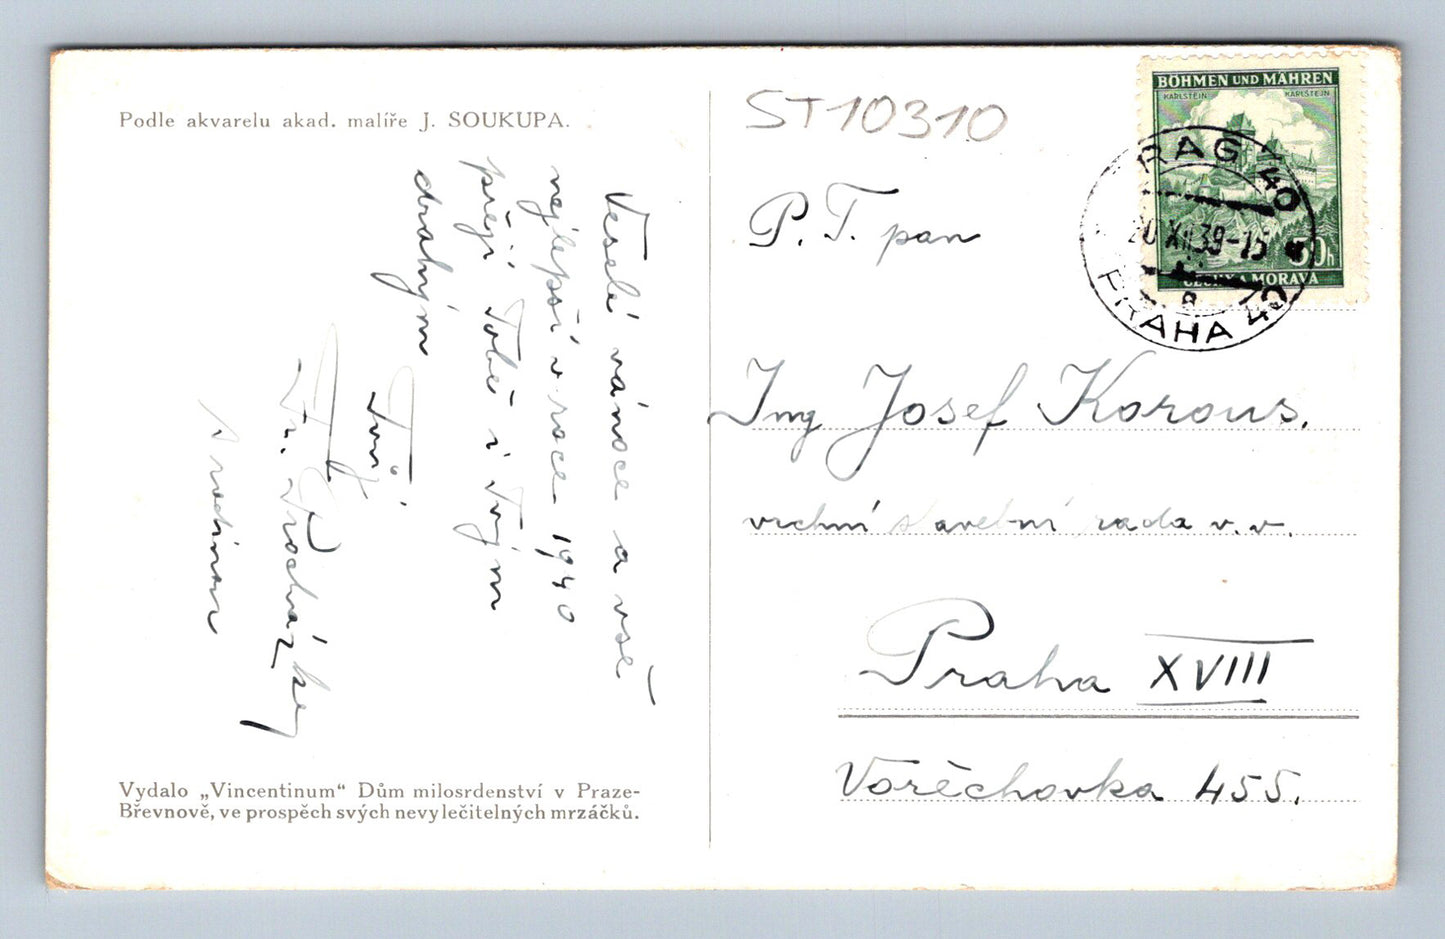 Podle akvarelu akad. malíře J. SOUKUPA.
Veselé vánoce a vše
nejlepší v roce 1940
přejí Tobě i Tvým
drahým
Tvůj
Fr. Procházka
s rodinou
Vydalo „Vincentinum“ Dům milosrdenství v Praze-
Břevnově, ve prospěch svých nevyléčitelných mrzáčků.
ST10310
BÖHMEN UND MÄHREN
KARLSTEIN KARLŠTEJN
50h
ČECHY A MORAVA
PRAG 40
20.XII.39-15
PRAHA 40
P. T. pan
Ing Josef Korous.
vrchní stavební rada v.v.
Praha XVIII
Vořechovka 455.